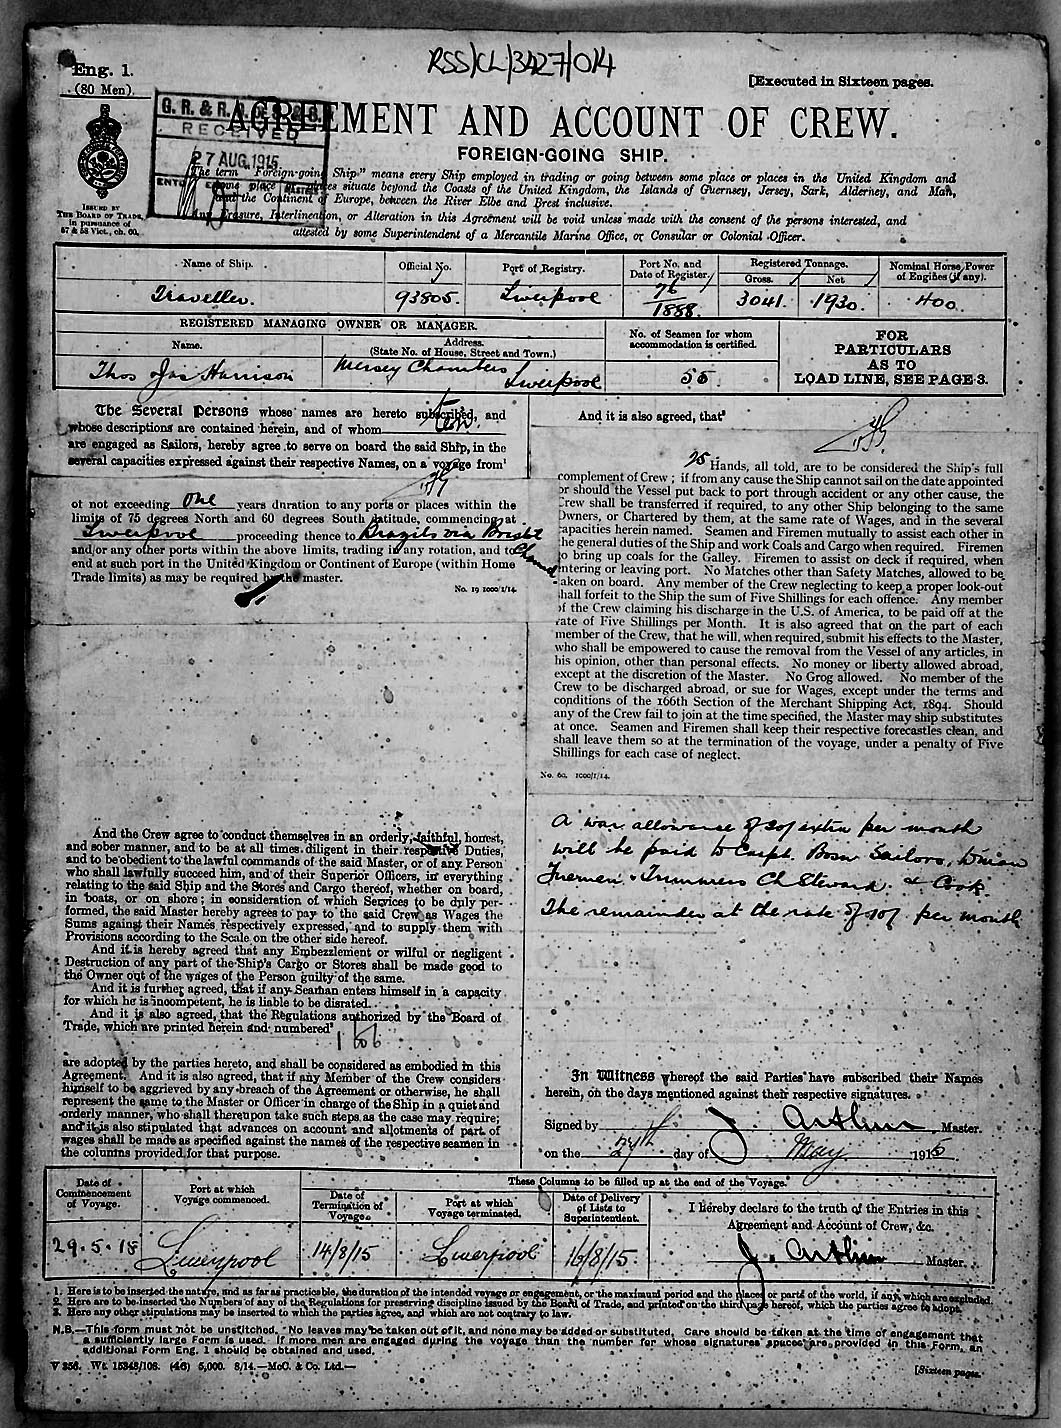 RSS/CL/3427/014
Eng. 1.
(80 Men).
[Executed in Sixteen pages.
G. R. &
RECEIVED
27 AUG. 1915
AGREEMENT AND ACCOUNT OF CREW.
FOREIGN-GOING SHIP.
ISSUED BY
THE BOARD OF TRADE,
in pursuance of
57 & 58 Vict., ch. 60.
The term "Foreign-going Ship" means every Ship employed in trading or going between some place or places in the United Kingdom and
some place or places situate beyond the Coasts of the United Kingdom, the Islands of Guernsey, Jersey, Sark, Alderney, and Man,
and the Continent of Europe, between the River Elbe and Brest inclusive.
Any Erasure, Interlineation, or Alteration in this Agreement will be void unless made with the consent of the persons interested, and
attested by some Superintendent of a Mercantile Marine Office, or Consular or Colonial Officer.
Name of Ship. Official No. Port of Registry. Port No. and Date of Register. Registered Tonnage. Gross. Net Nominal Horse Power of Engines (if any).
Traveller. 93805. Liverpool 76/1888. 3041. 1930. 400.
REGISTERED MANAGING OWNER OR MANAGER.
Name. Address. (State No. of House, Street and Town.)
No. of Seamen for whom accommodation is certified.
FOR PARTICULARS AS TO LOAD LINE, SEE PAGE 3.
Thos Jas Harrison Mersey Chambers Liverpool 55.
The Several Persons whose names are hereto subscribed, and
whose descriptions are contained herein, and of whom ten.
are engaged as Sailors, hereby agree to serve on board the said Ship, in the
several capacities expressed against their respective Names, on a voyage from¹
of not exceeding one years duration to any ports or places within the
limits of 75 degrees North and 60 degrees South latitude, commencing at
Liverpool proceeding thence to Brazils via Bristol
and/or any other ports within the above limits, trading in any rotation, and to
end at such port in the United Kingdom or Continent of Europe (within Home
Trade limits) as may be required by the master.
No. 19 1000/1/14.
And the Crew agree to conduct themselves in an orderly, faithful, honest,
and sober manner, and to be at all times diligent in their respective Duties,
and to be obedient to the lawful commands of the said Master, or of any Person
who shall lawfully succeed him, and of their Superior Officers, in everything
relating to the said Ship and the Stores and Cargo thereof, whether on board,
in boats, or on shore; in consideration of which Services to be duly per-
formed, the said Master hereby agrees to pay to the said Crew as Wages the
Sums against their Names respectively expressed, and to supply them with
Provisions according to the Scale on the other side hereof.
And it is hereby agreed that any Embezzlement or wilful or negligent
Destruction of any part of the Ship's Cargo or Stores shall be made good to
the Owner out of the wages of the Person guilty of the same.
And it is further agreed, that if any Seaman enters himself in a capacity
for which he is incompetent, he is liable to be disrated.
And it is also agreed, that the Regulations authorized by the Board of
Trade, which are printed herein and numbered²
1 to 6
are adopted by the parties hereto, and shall be considered as embodied in this
Agreement. And it is also agreed, that if any Member of the Crew considers
himself to be aggrieved by any breach of the Agreement or otherwise, he shall
represent the same to the Master or Officer in charge of the Ship in a quiet and
orderly manner, who shall thereupon take such steps as the case may require;
and it is also stipulated that advances on account and allotments of part of
wages shall be made as specified against the names of the respective seamen in
the columns provided for that purpose.
And it is also agreed, that³
25 Hands, all told, are to be considered the Ship's full
complement of Crew; if from any cause the Ship cannot sail on the date appointed
or should the Vessel put back to port through accident or any other cause, the
Crew shall be transferred if required, to any other Ship belonging to the same
Owners, or Chartered by them, at the same rate of Wages, and in the several
capacities herein named. Seamen and Firemen mutually to assist each other in
the general duties of the Ship and work Coals and Cargo when required. Firemen
to bring up coals for the Galley. Firemen to assist on deck if required, when
entering or leaving port. No Matches other than Safety Matches, allowed to be
taken on board. Any member of the Crew neglecting to keep a proper look-out
shall forfeit to the Ship the sum of Five Shillings for each offence. Any member
of the Crew claiming his discharge in the U.S. of America, to be paid off at the
rate of Five Shillings per Month. It is also agreed that on the part of each
member of the Crew, that he will, when required, submit his effects to the Master,
who shall be empowered to cause the removal from the Vessel of any articles, in
his opinion, other than personal effects. No money or liberty allowed abroad,
except at the discretion of the Master. No Grog allowed. No member of the
Crew to be discharged abroad, or sue for Wages, except under the terms and
conditions of the 166th Section of the Merchant Shipping Act, 1894. Should
any of the Crew fail to join at the time specified, the Master may ship substitutes
at once. Seamen and Firemen shall keep their respective forecastles clean, and
shall leave them so at the termination of the voyage, under a penalty of Five
Shillings for each case of neglect.
No. 60. 1000/1/14.
A war allowance of 20/ extra per month
will be paid to Carpt. Bosn Sailors,
Firemen & Trimmers Ch Steward. & Cook.
The remainder at the rate of 10/ per month
In Witness whereof the said Parties have subscribed their Names
herein, on the days mentioned against their respective signatures.
Signed by J. Arthur Master.
on the 27th day of May 1915
These Columns to be filled up at the end of the Voyage.
Date of Commencement of Voyage. Port at which Voyage commenced. Date of Termination of Voyage. Port at which Voyage terminated. Date of Delivery of Lists to Superintendent.
I hereby declare to the truth of the Entries in this
Agreement and Account of Crew, &c.
29.5.15 Liverpool 14/8/15 Liverpool 16/8/15. J. Arthur Master.
1. Here is to be inserted the nature, and as far as practicable, the duration of the intended voyage or engagement, or the maximum period and the places or parts of the world, if any, which are excluded.
2. Here are to be inserted the Numbers of any of the Regulations for preserving discipline issued by the Board of Trade, and printed on the third page hereof, which the parties agree to adopt.
3. Here any other stipulations may be inserted to which the parties agree, and which are not contrary to law.
N.B.—This form must not be unstitched. No leaves may be taken out of it, and none may be added or substituted. Care should be taken at the time of engagement that
a sufficiently large Form is used. If more men are engaged during the voyage than the number for whose signatures spaces are provided in this Form, an
additional Form Eng. 1 should be obtained and used.
V 356. Wt. 15348/108. (46) 5,000. 8/14.—McC. & Co. Ltd.—
[Sixteen pages.